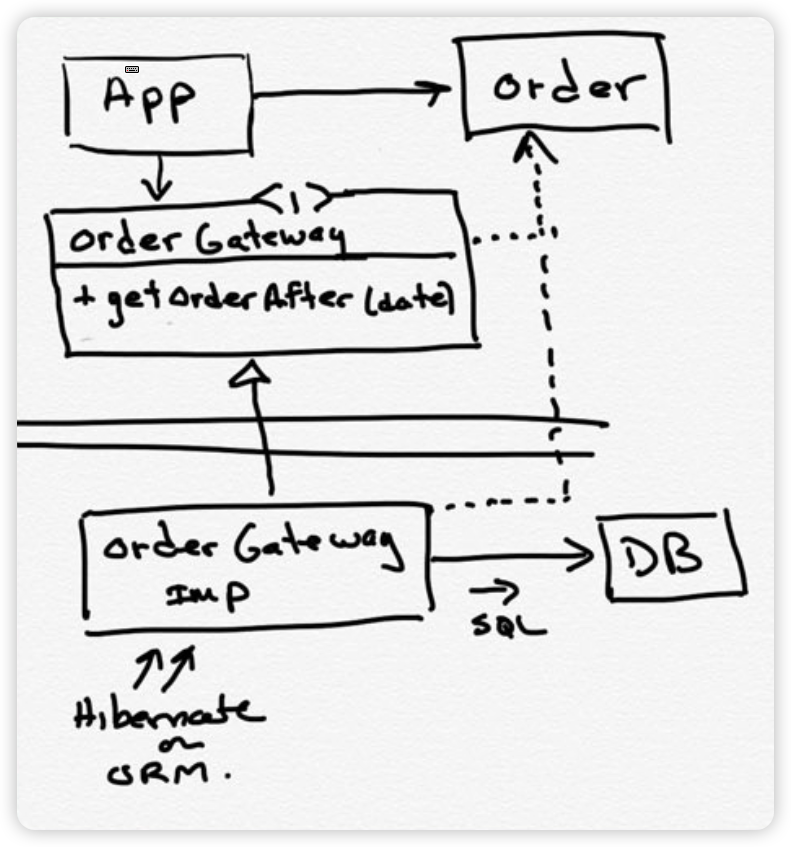 App
Order
<I>
Order Gateway
+ getOrderAfter(date)
Order Gateway
Imp
DB
SQL
Hibernate
or
ORM.